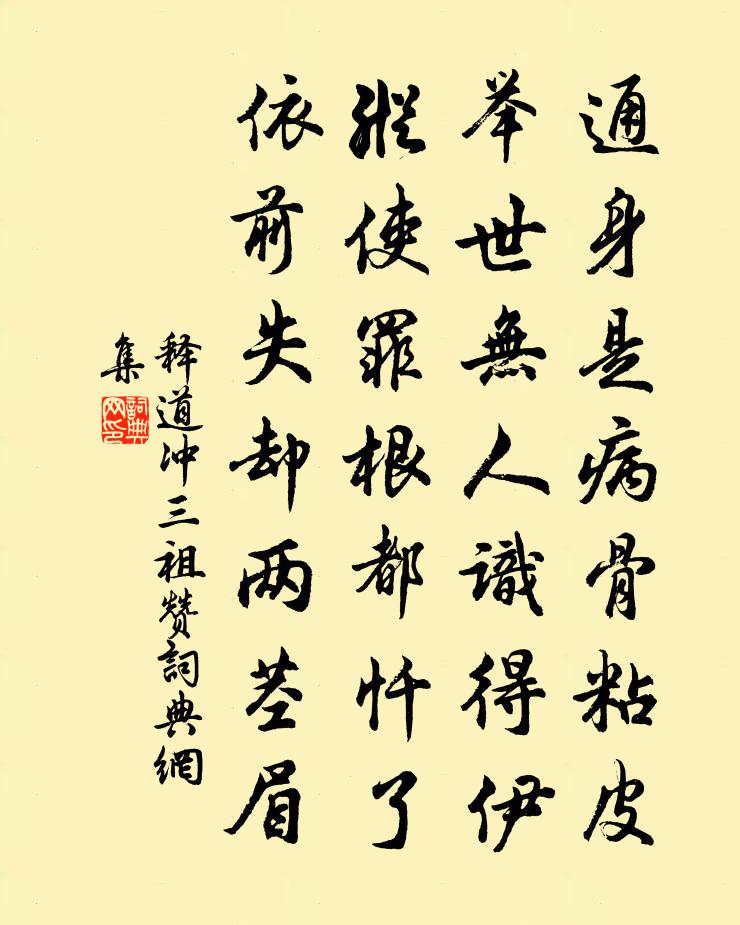 通身是病骨粘皮
举世無人識得伊
縱使罪根都忏了
依前失却两茎眉
释道冲三祖赞詞典網
集
詞典網印